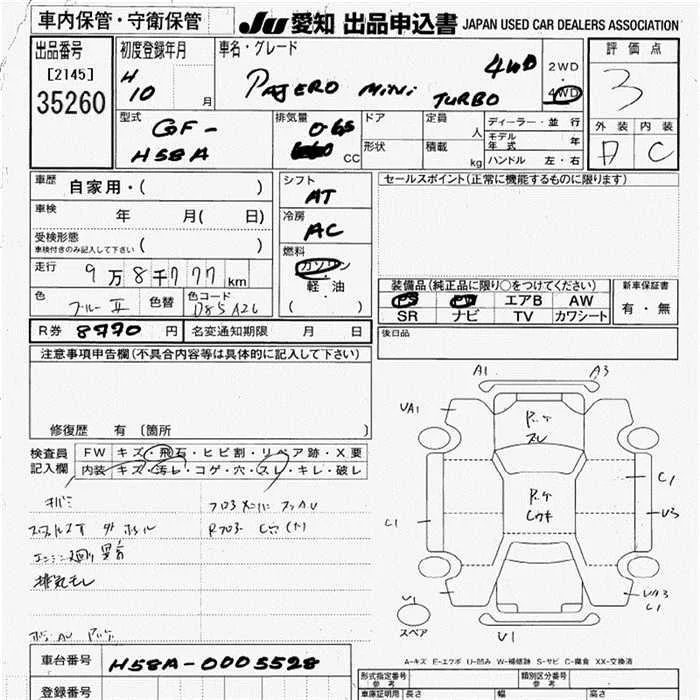 車内保管・守衛保管 JU 愛知 出品申込書 JAPAN USED CAR DEALERS ASSOCIATION
出品番号
[2145]
35260
初度登録年月
H
10 月
車名・グレード
PAJERO MINI TURBO 4WD
2WD
4WD
評価点
3
外装 内装
A C
型式
GF-
H58A
排気量
0.65
660 CC
ドア
形状
定員 人
積載 kg
ディーラー・並行
モデル年式 年
ハンドル 左・右
車歴 自家用・( )
車検 年 月( 日)
受検形態
車検付きのみ記入して下さい ( )
走行 9万8千777km
色 ブルーII 色替 色コード
シフト
AT
冷房
AC
燃料
ガソリン
軽・油
( )
セールスポイント(正常に機能するものに限ります)
装備品(純正品に限り○をつけてください)
PS PW エアB AW
SR ナビ TV カワシート
新車保証書
有・無
後日品
R券 8770 円 名変通知期限 月 日
注意事項申告欄(不具合内容等は具体的に記入して下さい)
修復歴 有 〔箇所 〕
検査員
記入欄
FW キズ・飛石・ヒビ割・リペア跡・X要
内装 キズ・汚レ・コゲ・穴・スレ・キレ・破レ
排気モレ
A1 A3
UA1
スレ
C1
U3
C1
UA3
C1
U1
スペア
V1
A-キズ E-エクボ U-凹み W-補修跡 S-サビ C-腐食 XX-交換済
車台番号 H58A-0005528
登録番号
形式指定番号
参考
類別区分番号
参考
車庫証明用 長さ 幅 高さ